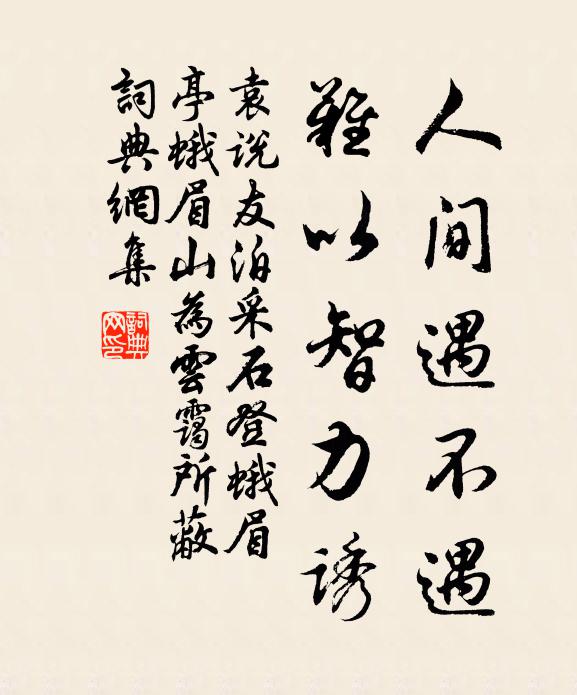 人间遇不遇
難以智力诱
袁说友泊采石登蛾眉
亭蛾眉山為雲靄所蔽
詞典網集
詞典网印